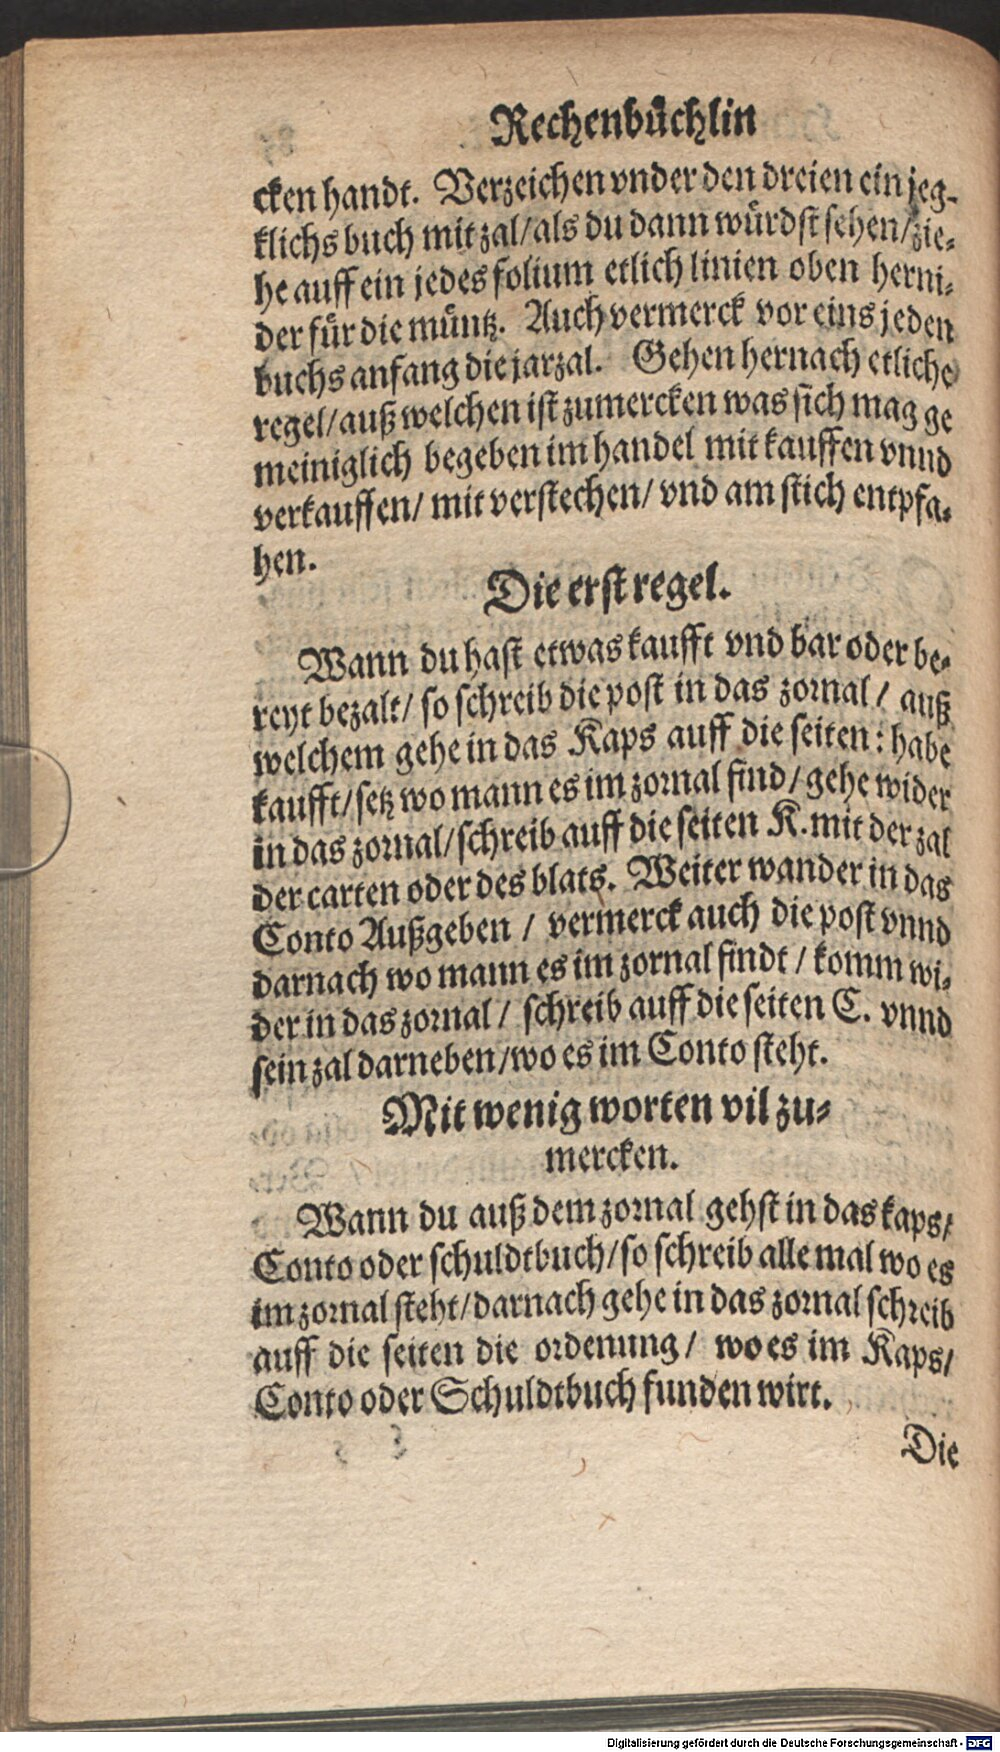 Rechenbuͤchlin
cken handt. Verzeichen vnder den dreien ein jeg-
klichs buch mit zal/als du dann wuͤrdst sehen/zie-
he auff ein jedes folium etlich linien oben herni-
der fuͤr die muͤntz. Auch vermerck vor eins jeden
buchs anfang die jarzal. Gehen hernach etliche
regel/auß welchen ist zumercken was sich mag ge
meiniglich begeben im handel mit kauffen vnnd
verkauffen/ mit verstechen/ vnd am stich entpfa-
hen.
Die erst regel.
Wann du hast etwas kaufft vnd bar oder be-
reyt bezalt/ so schreib die post in das zornal/ auß
welchem gehe in das Kaps auff die seiten: habe
kaufft/setz wo mann es im zornal find/gehe wider
in das zornal/schreib auff die seiten K. mit der zal
der carten oder des blats. Weiter wander in das
Conto Außgeben / vermerck auch die post vnnd
darnach wo mann es im zornal findt / komm wi-
der in das zornal/ schreib auff die seiten C. vnnd
sein zal darneben/wo es im Conto steht.
Mit wenig worten vil zu-
mercken.
Wann du auß dem zornal gehst in das kaps/
Conto oder schuldtbuch/so schreib alle mal wo es
im zornal steht/darnach gehe in das zornal schreib
auff die seiten die ordenung/ wo es im Kaps/
Conto oder Schuldtbuch funden wirt.
Die
Digitalisierung gefördert durch die Deutsche Forschungsgemeinschaft - DFG